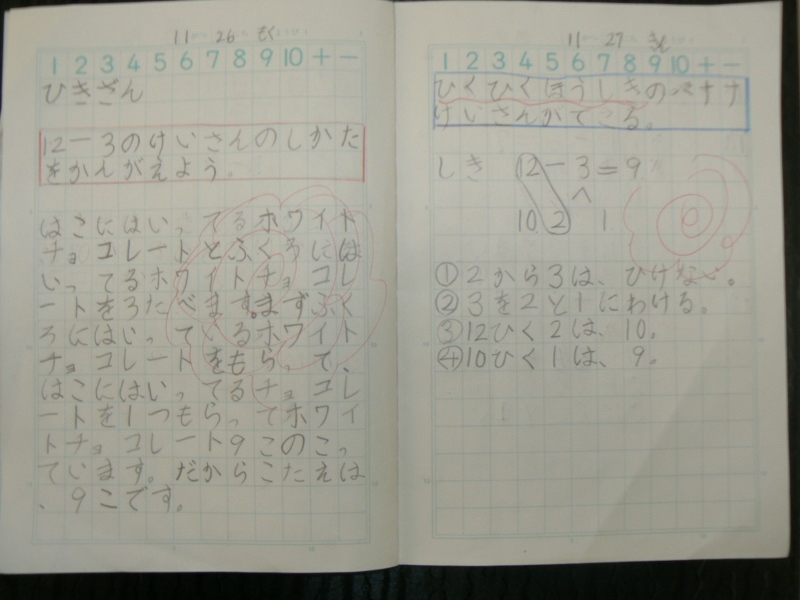 11 26 もく
1 2 3 4 5 6 7 8 9 10 + −
ひきざん
12－3のけいさんのしかた
をかんがえよう。
はこにはいってるホワイト
チョコレートとふくろには
いってるホワイトチョコレ
ートを3たべます。まずふく
ろにはいっているホワイト
チョコレートをもらって、
はこにはいってるチョコレ
ートを1つもらってホワイ
トチョコレート9このこっ
ています。だからこたえは
、9こです。
11 27 きん
1 2 3 4 5 6 7 8 9 10 + −
ひくひくほうしきの
けいさんができる。
しき 12－3＝9
10 2 1
①2から3は、ひけない。
②3を2と1にわける。
③12ひく2は、10。
④10ひく1は、9。